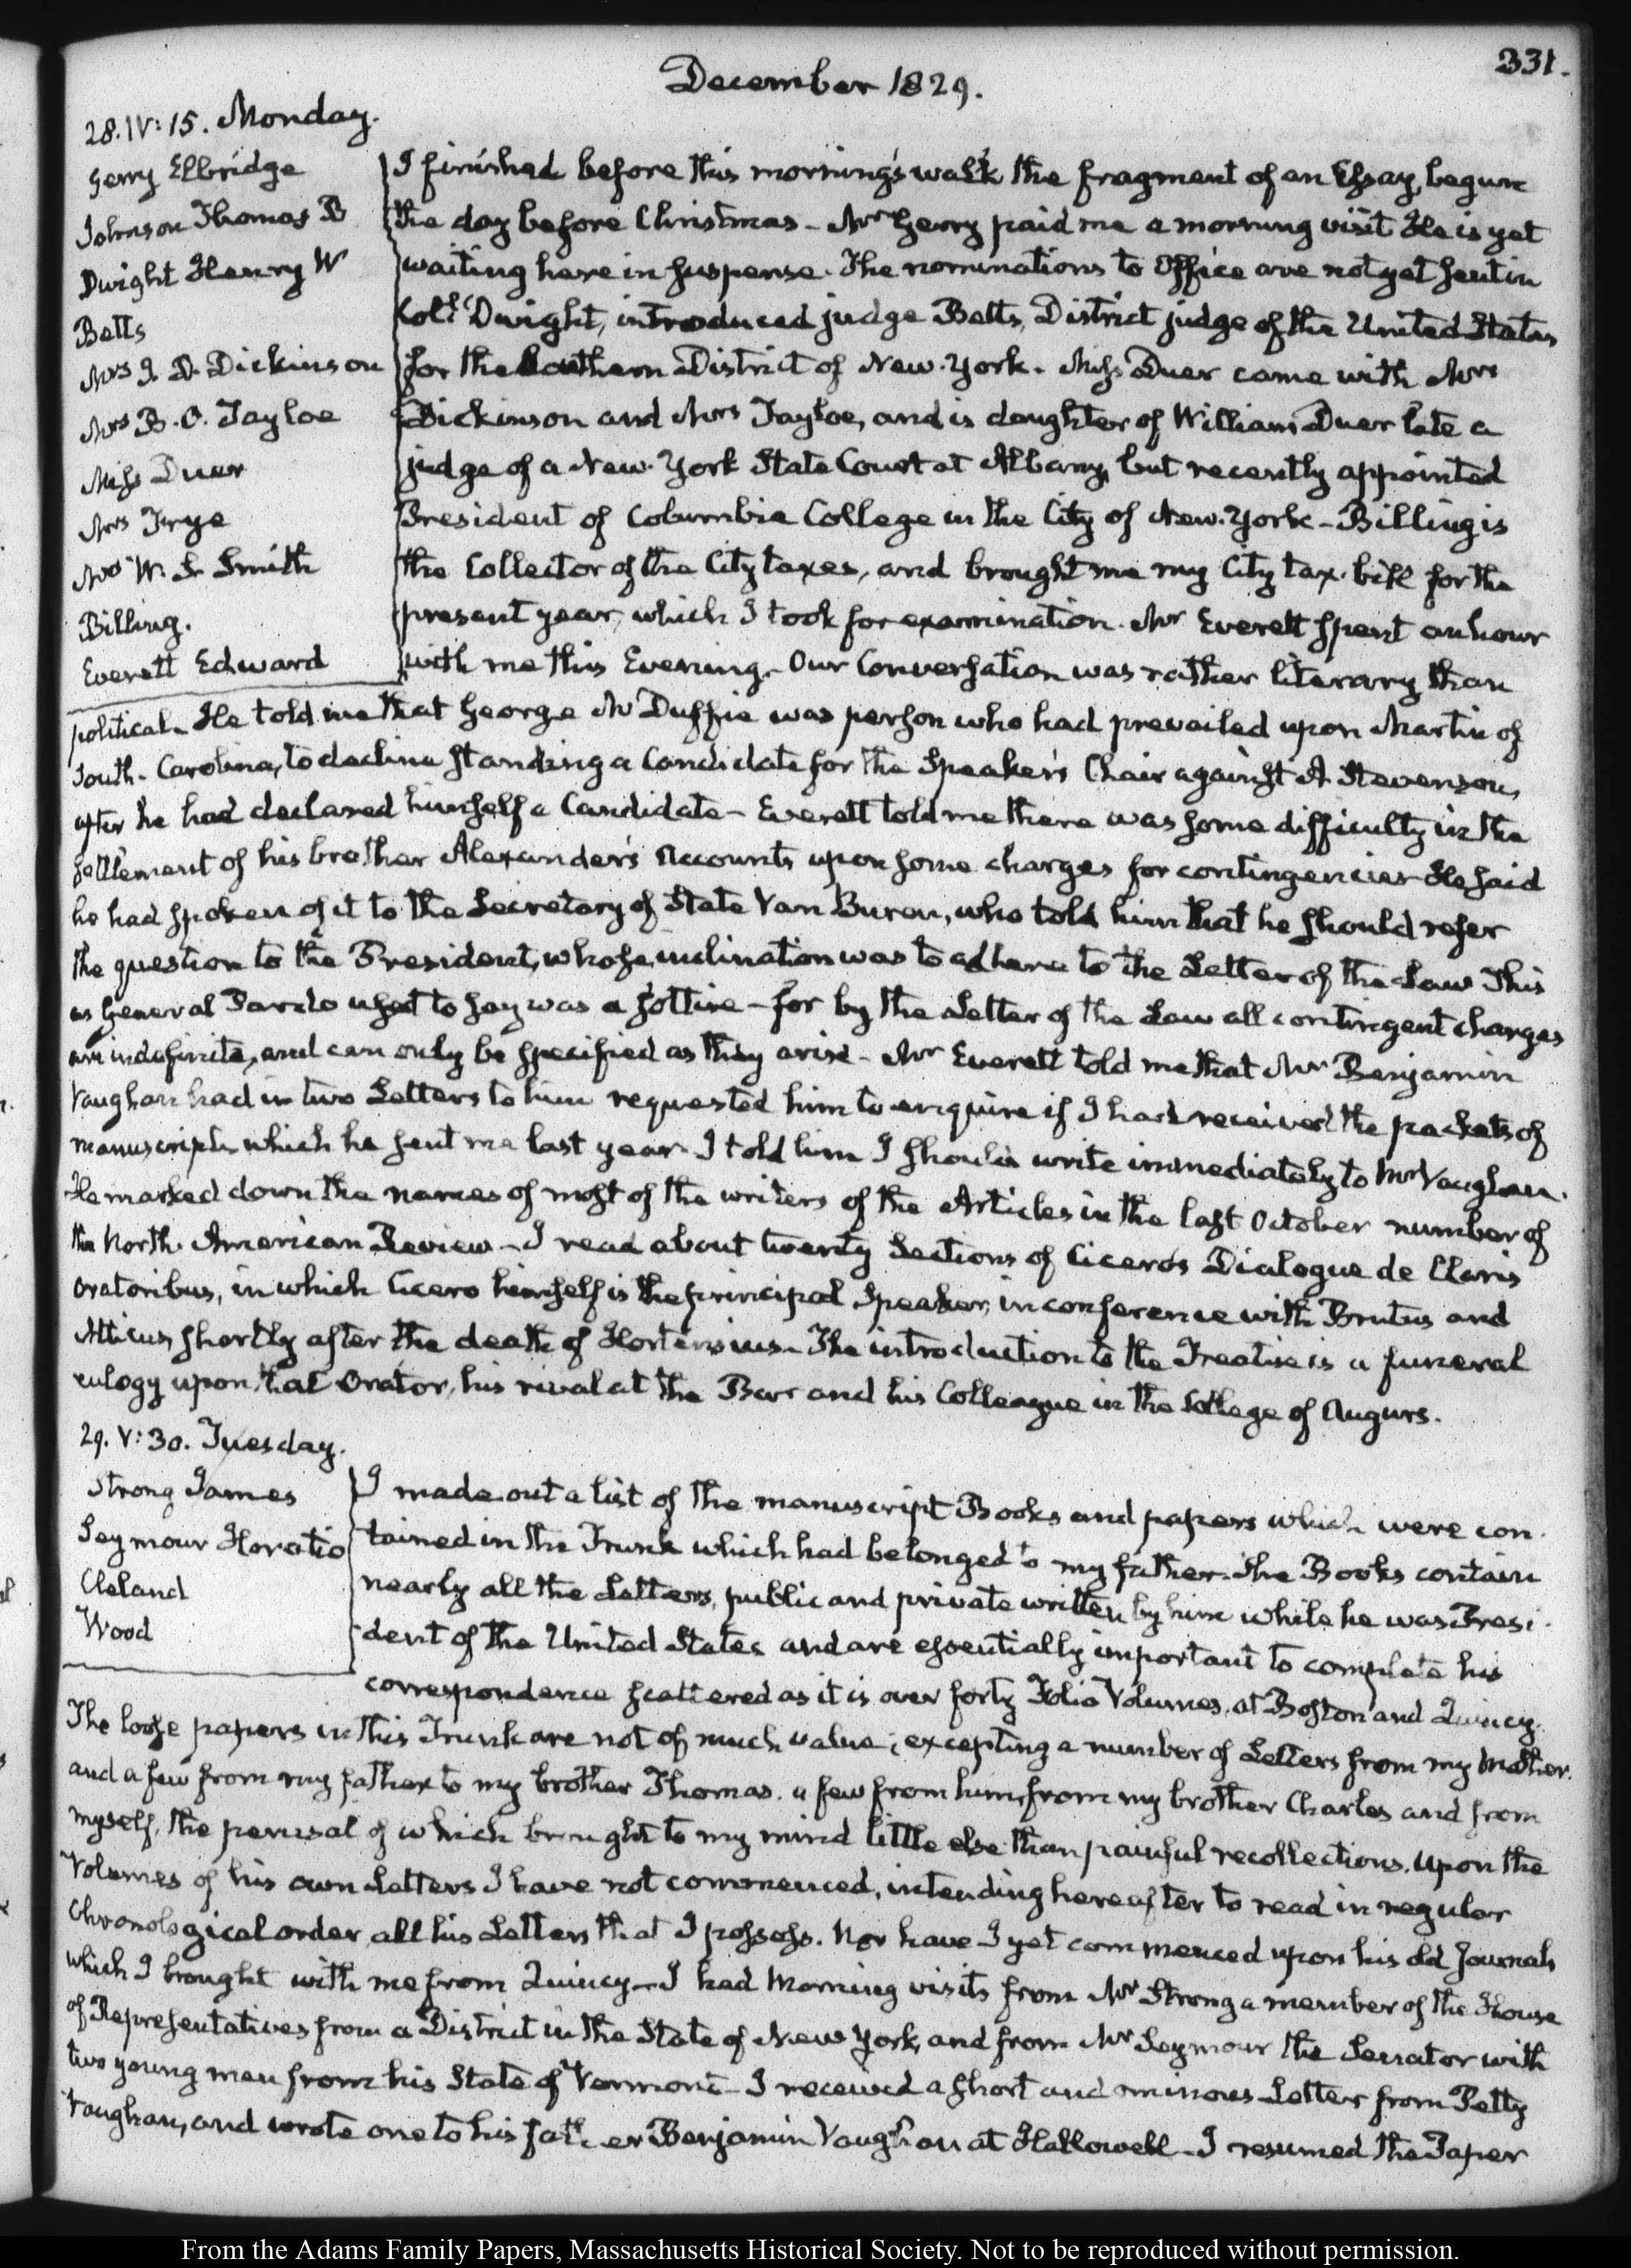 331.
December 1829.
28. IV: 15. Monday.
Gerry Elbridge
Johnson Thomas B
Dwight Henry W
Betts
Mrs J. D. Dickinson
Mrs B. O. Tayloe
Miss Duer
Mrs Frye
Mrs W. S. Smith
Billing.
Everett Edward
I finished before this morning's walk the fragment of an Essay, begun
the day before Christmas – Mr Gerry paid me a morning visit He is yet
waiting here in suspense. The nominations to Office are not yet sent in
Coll. Dwight, introduced judge Betts, District judge of the United States
for the Southern District of New-York. Miss Duer came with Mrs
Dickinson and Mrs Tayloe, and is daughter of William Duer late a
judge of a New-York State Court at Albany, but recently appointed
President of Columbia College in the City of New-York – Billing is
the Collector of the City taxes, and brought me my City tax-bill for the
present year, which I took for examination. Mr Everett spent an hour
with me this Evening. Our Conversation was rather literary than
political. He told me that George McDuffie was person who had prevailed upon Martin of
South-Carolina, to decline standing a Candidate for the Speaker's Chair against A. Stevenson,
after he had declared himself a Candidate – Everett told me there was some difficulty in the
settlement of his brother Alexander's Accounts upon some charges for contingencies He said
he had spoken of it to the Secretary of State Van Buren, who told him that he should refer
the question to the President, whose inclination was to adhere to the Letter of the Law This
as General Pardo used to say was a sottise – for by the Letter of the Law all contingent charges
are indefinite, and can only be specified as they arise – Mr Everett told me that Mr Benjamin
Vaughan had in two Letters to him requested him to enquire if I had received the packets of
manuscripts which he sent me last year I told him I should write immediately to Mr Vaughan.
He marked down the names of most of the writers of the Articles in the last October number of
the North-American Review – I read about twenty Sections of Cicero's Dialogue de Claris
Oratoribus, in which Cicero himself is the principal Speaker, in conference with Brutus and
Atticus shortly after the death of Hortensius – The introduction to the Treatise is a funeral
eulogy upon that Orator, his rival at the Bar and his Colleague in the College of Augurs.
29. V: 30. Tuesday.
Strong James
Seymour Horatio
Cleland
Wood
I made out a list of the manuscript Books and papers which were con-
tained in the Trunk which had belonged to my father. The Books contain
nearly all the Letters, public and private written by him while he was Presi-
dent of the United States and are essentially important to complete his
correspondence scattered as it is over forty Folio Volumes, at Boston and Quincy.
The loose papers in this Trunk are not of much value; excepting a number of Letters from my Mother.
and a few from my father to my brother Thomas. a few from him, from my brother Charles and from
myself, the perusal of which brought to my mind little else than painful recollections. Upon the
Volumes of his own Letters I have not commenced, intending hereafter to read in regular
Chronological order all his Letters that I possess. Nor have I yet commenced upon his old Journals
which I brought with me from Quincy – I had Morning visits from Mr Strong a member of the House
of Representatives from a District in the State of New York, and from Mr Seymour the Senator with
two young men from his State of Vermont – I received a short and Letter from Petty
Vaughan, and wrote one to his father Benjamin Vaughan at Hallowell – I resumed the Paper
From the Adams Family Papers, Massachusetts Historical Society. Not to be reproduced without permission.